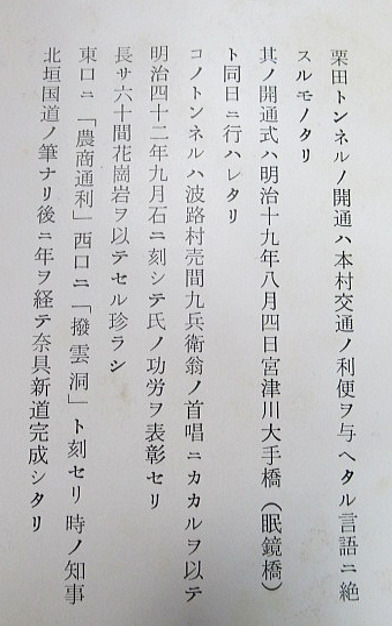 栗田トンネルノ開通ハ本村交通ノ利便ヲ与ヘタル言語ニ絶
スルモノタリ
其ノ開通式ハ明治十九年八月四日宮津川大手橋（眼鏡橋）
ト同日ニ行ハレタリ
コノトンネルハ波路村売間九兵衛翁ノ首唱ニカカルヲ以テ
明治四十二年九月石ニ刻シテ氏ノ功労ヲ表彰セリ
長サ六十間花崗岩ヲ以テセル珍ラシ
東口ニ「農商通利」西口ニ「撥雲洞」ト刻セリ時ノ知事
北垣国道ノ筆ナリ後ニ年ヲ経テ奈具新道完成シタリ